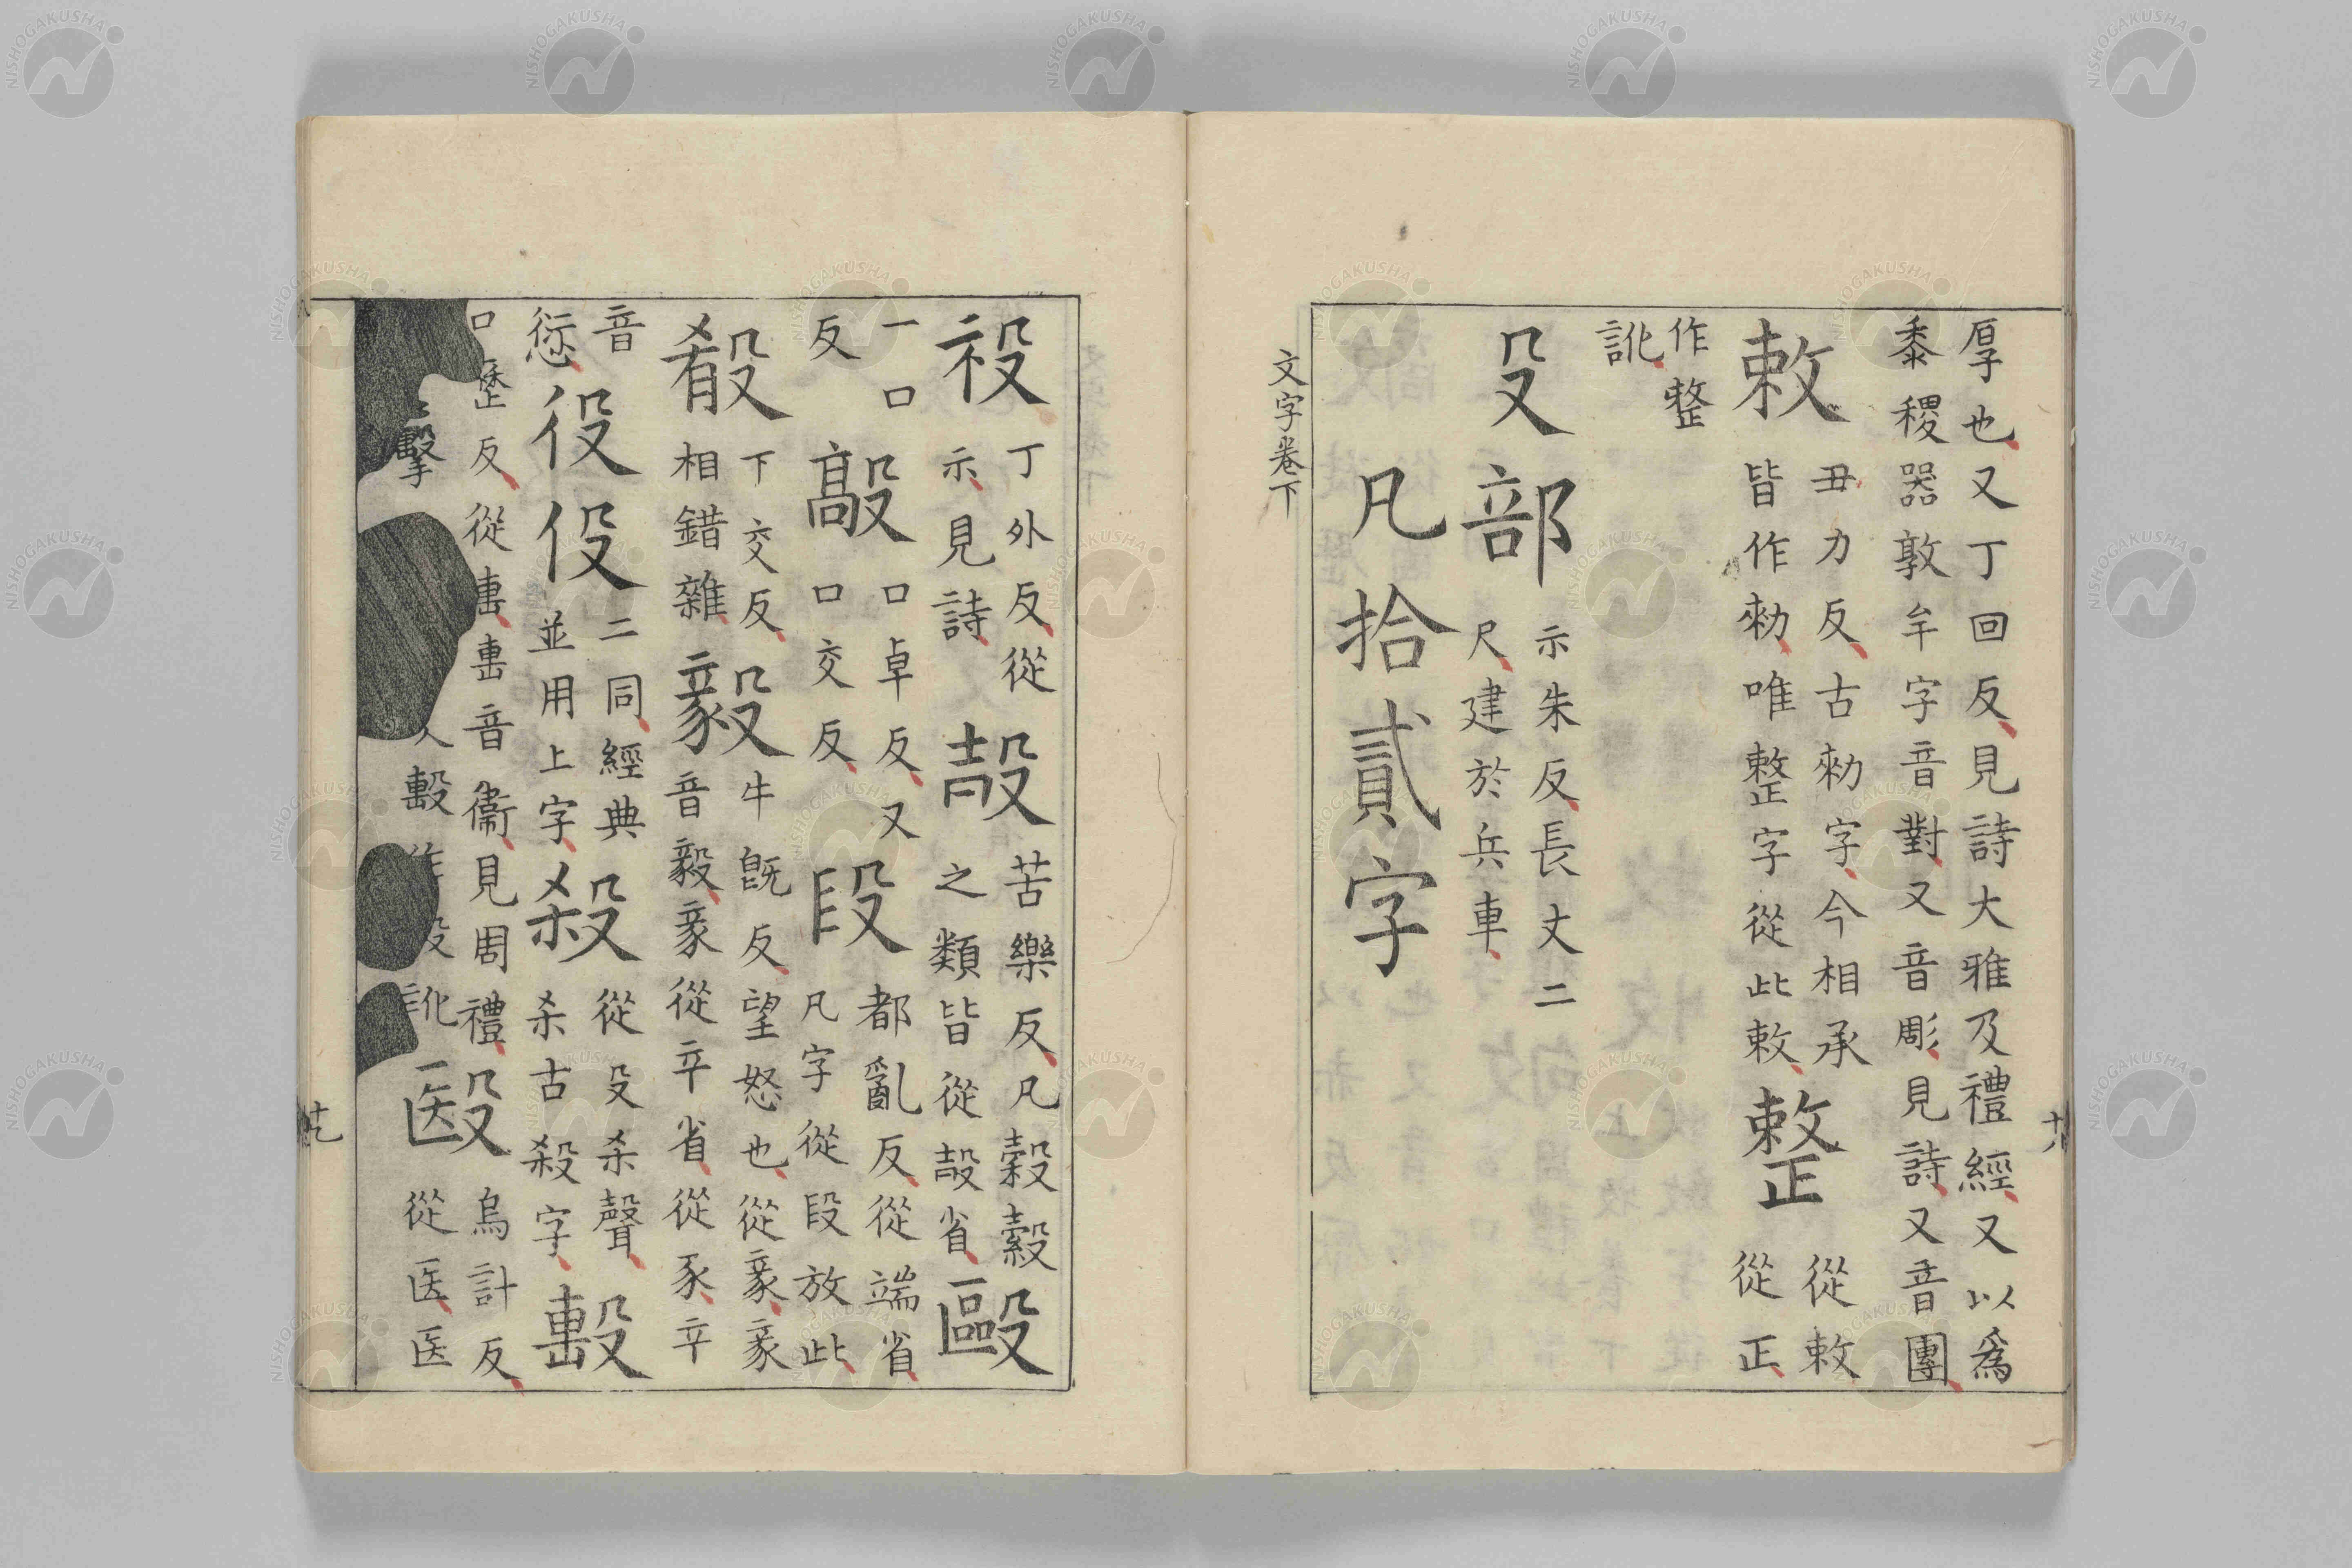 厚也又丁回反見詩大雅及禮經又以爲
黍稷器敦牟字音對又音彫見詩又音團
敕丑力反古勑字今相承
皆作勑唯整字從此敕
整從敕
從正
作整
訛
殳部示朱反長丈二
尺建於兵車
凡拾貳字
文字卷下
十八
祋丁外反從
示見詩
𣪊苦樂反凡穀縠
之類皆從𣪊省
毆
一口
反
毃口卓反又
口交反
段都亂反從端省
凡字從段放此
殽下交反
相錯雜
毅牛旣反望怒也從豙豙
音毅豙從辛省從豕辛
音
愆
役伇二同經典
並用上字
殺從殳杀聲
杀古殺字
毄
口歷反從軎軎音衞見周禮
擊
毄
訛
殹烏計反
從医医
NISHOGAKUSHA